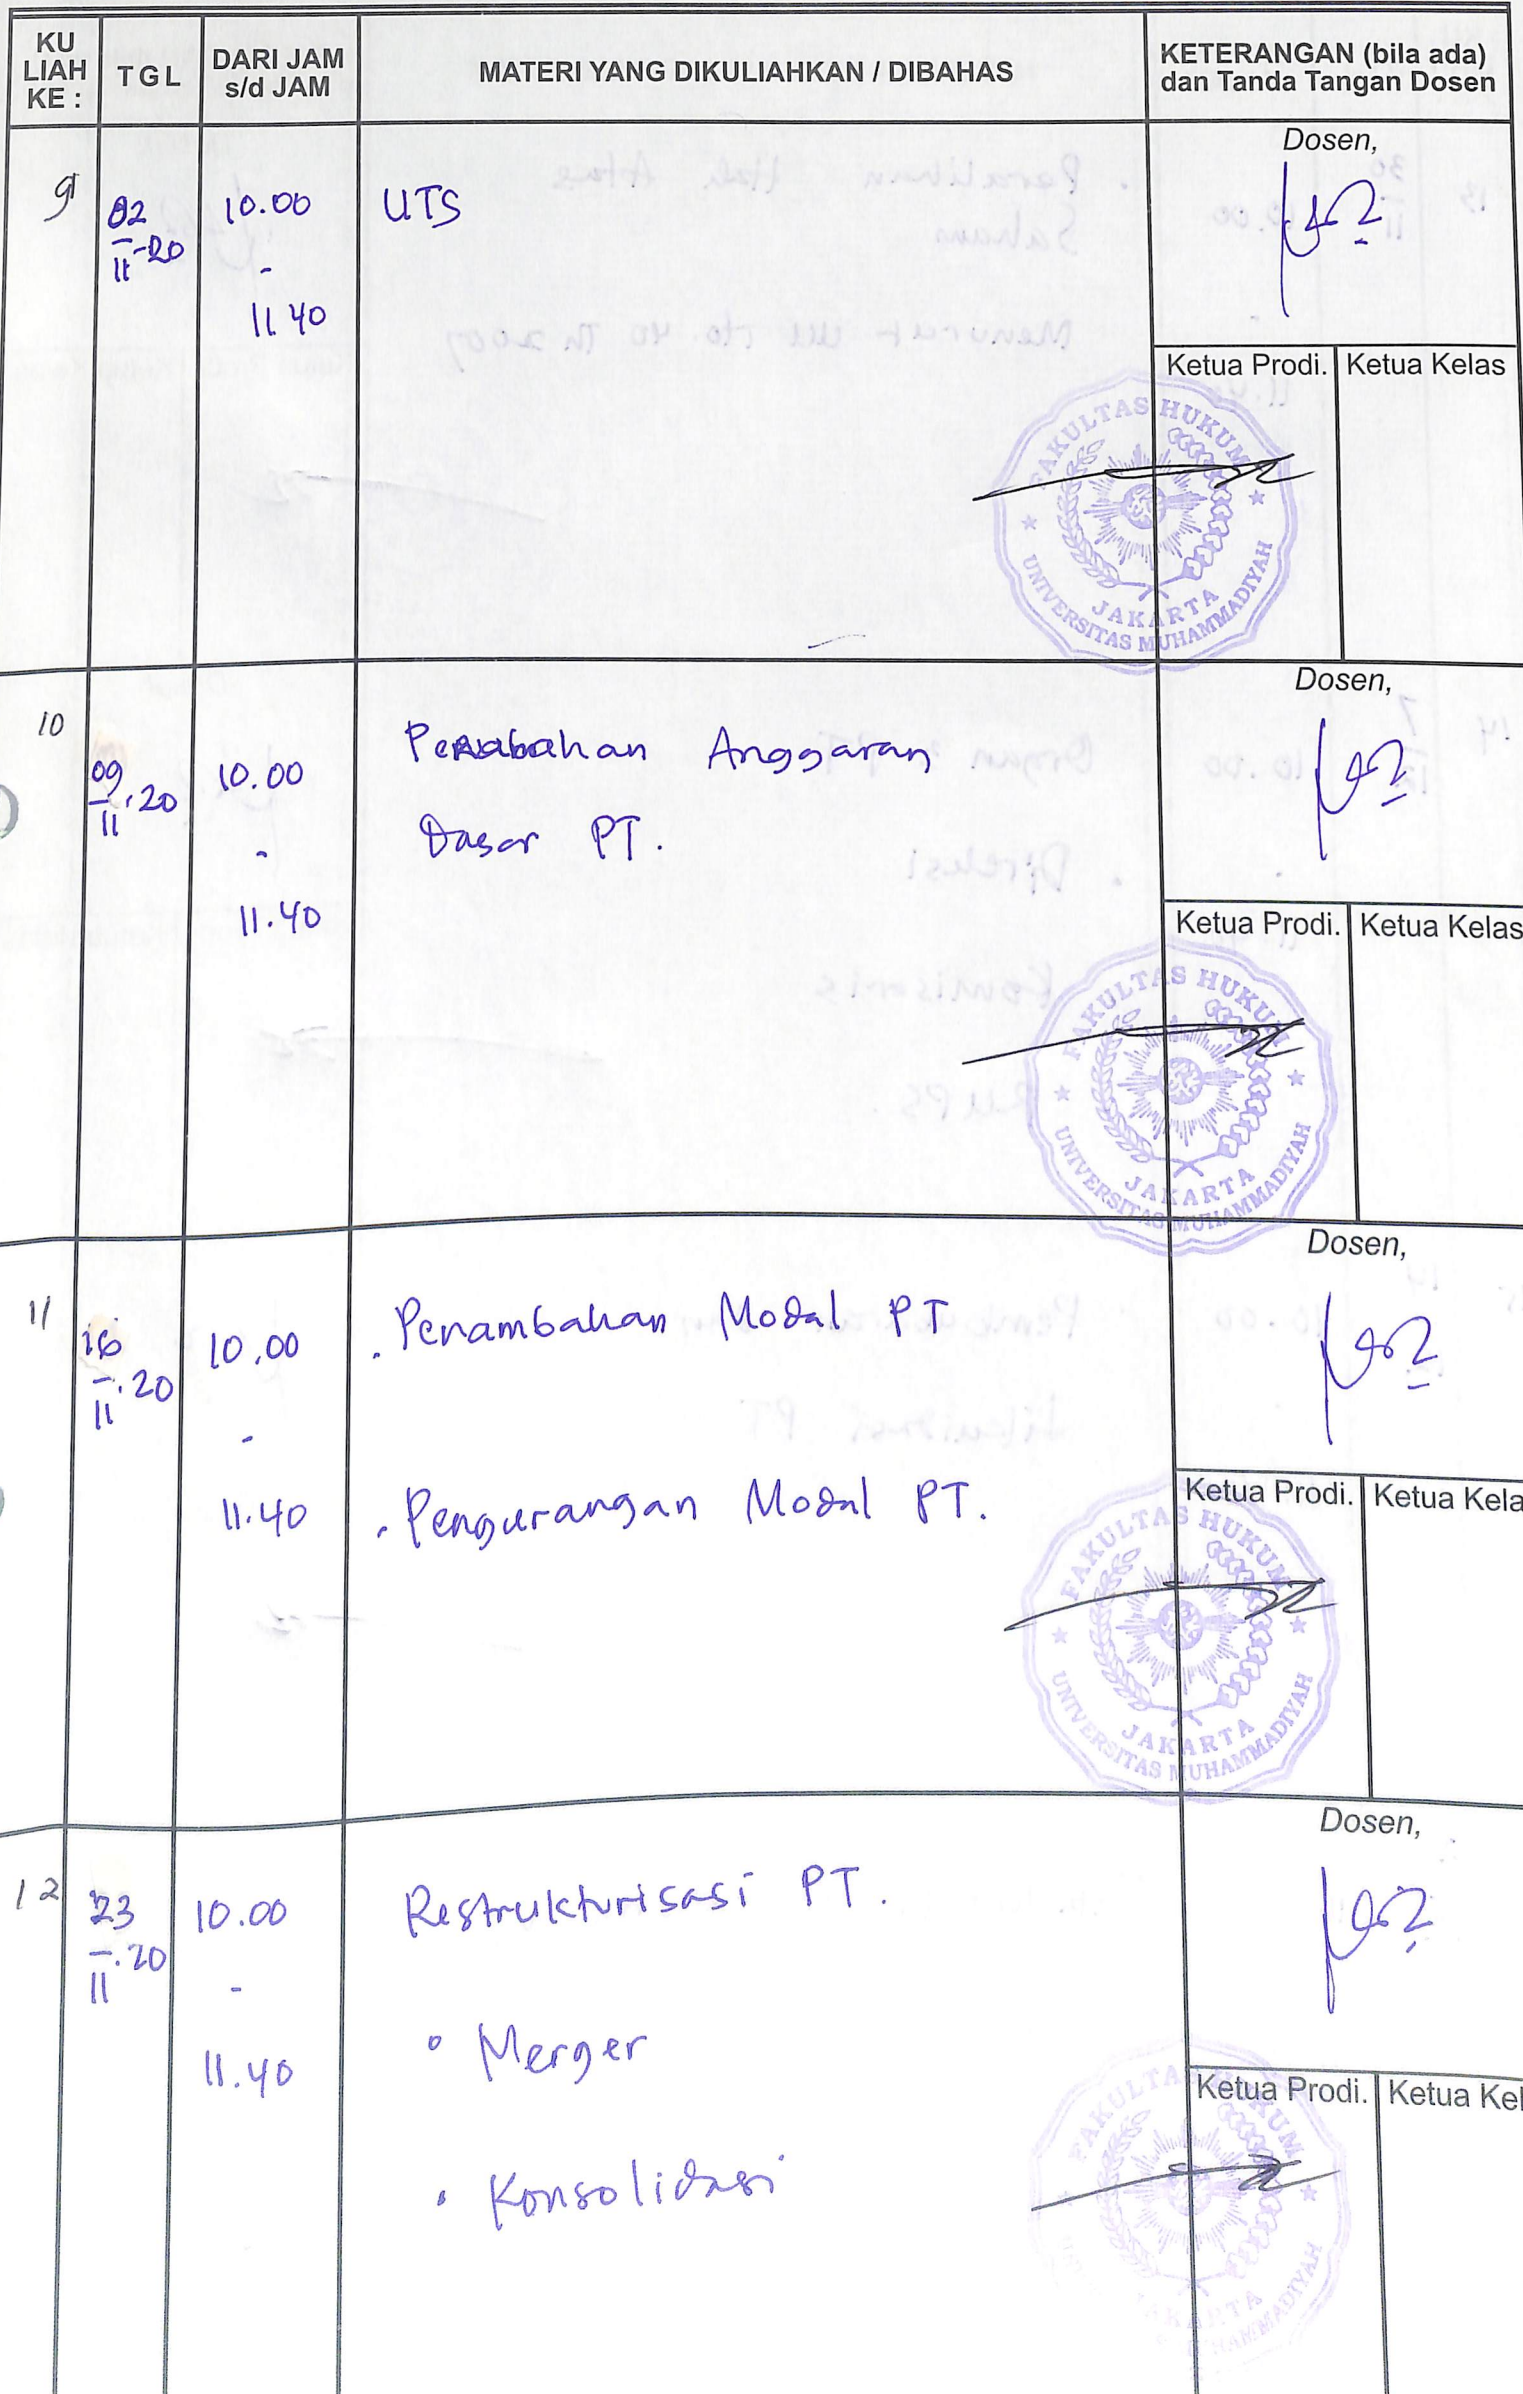 KU
LIAH
KE :
TGL
DARI JAM
s/d JAM
MATERI YANG DIKULIAHKAN / DIBAHAS
KETERANGAN (bila ada)
dan Tanda Tangan Dosen
9
02
11-20
10.00
-
11.40
UTS
Dosen,
Ketua Prodi.
Ketua Kelas
FAKULTAS HUKUM
UNIVERSITAS MUHAMMADIYAH
JAKARTA
10
09
11.20
10.00
-
11.40
Anggaran
Dasar PT.
Dosen,
Ketua Prodi.
Ketua Kelas
FAKULTAS HUKUM
UNIVERSITAS MUHAMMADIYAH
JAKARTA
11
16
11.20
10.00
-
11.40
. Penambahan Modal PT
. Pengurangan Modal PT.
Dosen,
Ketua Prodi.
Ketua Kela
FAKULTAS HUKUM
UNIVERSITAS MUHAMMADIYAH
JAKARTA
12
23
11.20
10.00
-
11.40
Restrukturisasi PT.
• Merger
• Konsolidasi
Dosen,
Ketua Prodi.
Ketua Kel
FAKULTAS HUKUM
JAKARTA